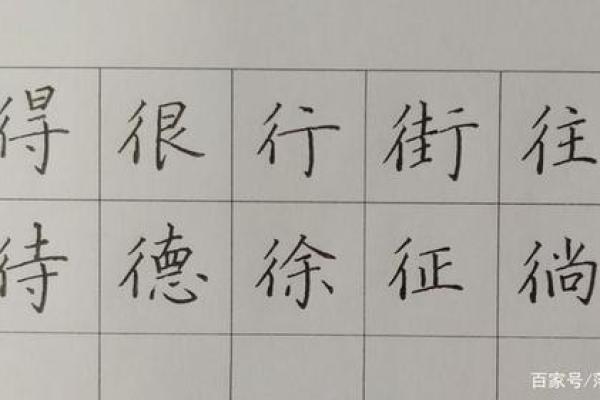 得很行街往
待德徐征徜
百家号/